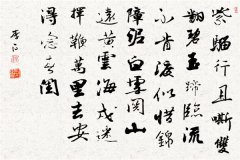 紫騮行且嘶雙
翻碧玉蹄臨流
不肯渡似惜錦
障泥白雪關山
遠黃雲海戍迷
揮鞭萬里去安
得念春閨